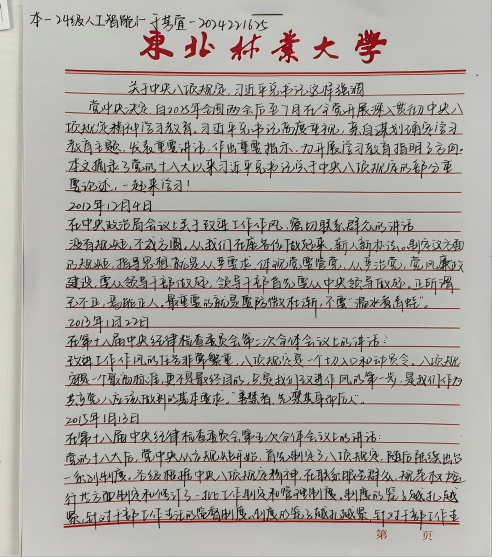 本-24级人工智能仁-于其宜-2024221625
東北林業大學
关于中央八项规定,习近平总书记这样强调
党中央决定,自2025年全国两会后至7月在全党开展深入贯彻中央八
项规定精神学习教育。习近平总书记高度重视,亲自谋划确定学习
教育主题,发表重要讲话,作出重要指示,为开展学习教育指明了方向。
本文摘录了党的十八大以来习近平总书记关于中央八项规定的部分重
要论述,一起来学习!
2012年12月4日
在中央政治局会议上关于改进工作作风、密切联系群众的讲话
没有规矩,不成方圆,从我们在座各位做起来,新人新办法。制定这方面
的规矩,指导思想就是从严要求,体现党要管党、从严治党,党风廉政
建设,要从领导干部做起,领导干部首先要从中央领导做起。正所谓
己不正,焉能正人。最重要的就是要防微杜渐,不要"温水煮青蛙"。
2013年1月22日
在第十八届中央纪律检查委员会第二次全体会议上的讲话:
改进工作作风的任务非常繁重,八项规定是一个切入口和动员令。八项规
定既不是最高标准,更不是最终目的,只是我们改进作风的第一步,是我们作为
共产党人应该做到的基本要求。"善禁者,先禁其身而后人"。
2015年1月13日
在第十八届中央纪律检查委员会第五次全体会议上的讲话:
党的十八大后,党中央从立规矩开始,首先制定了八项规定,随后陆续出台
一系列制度。各级根据中央八项规定精神,在联系服务群众、规范权力运
行等方面制定和修订了一批工作制度和管理制度,制度的笼子越扎越
紧,针对干部工作生活的监督制度,制度的笼子越扎越紧,针对干部工作生
第 页